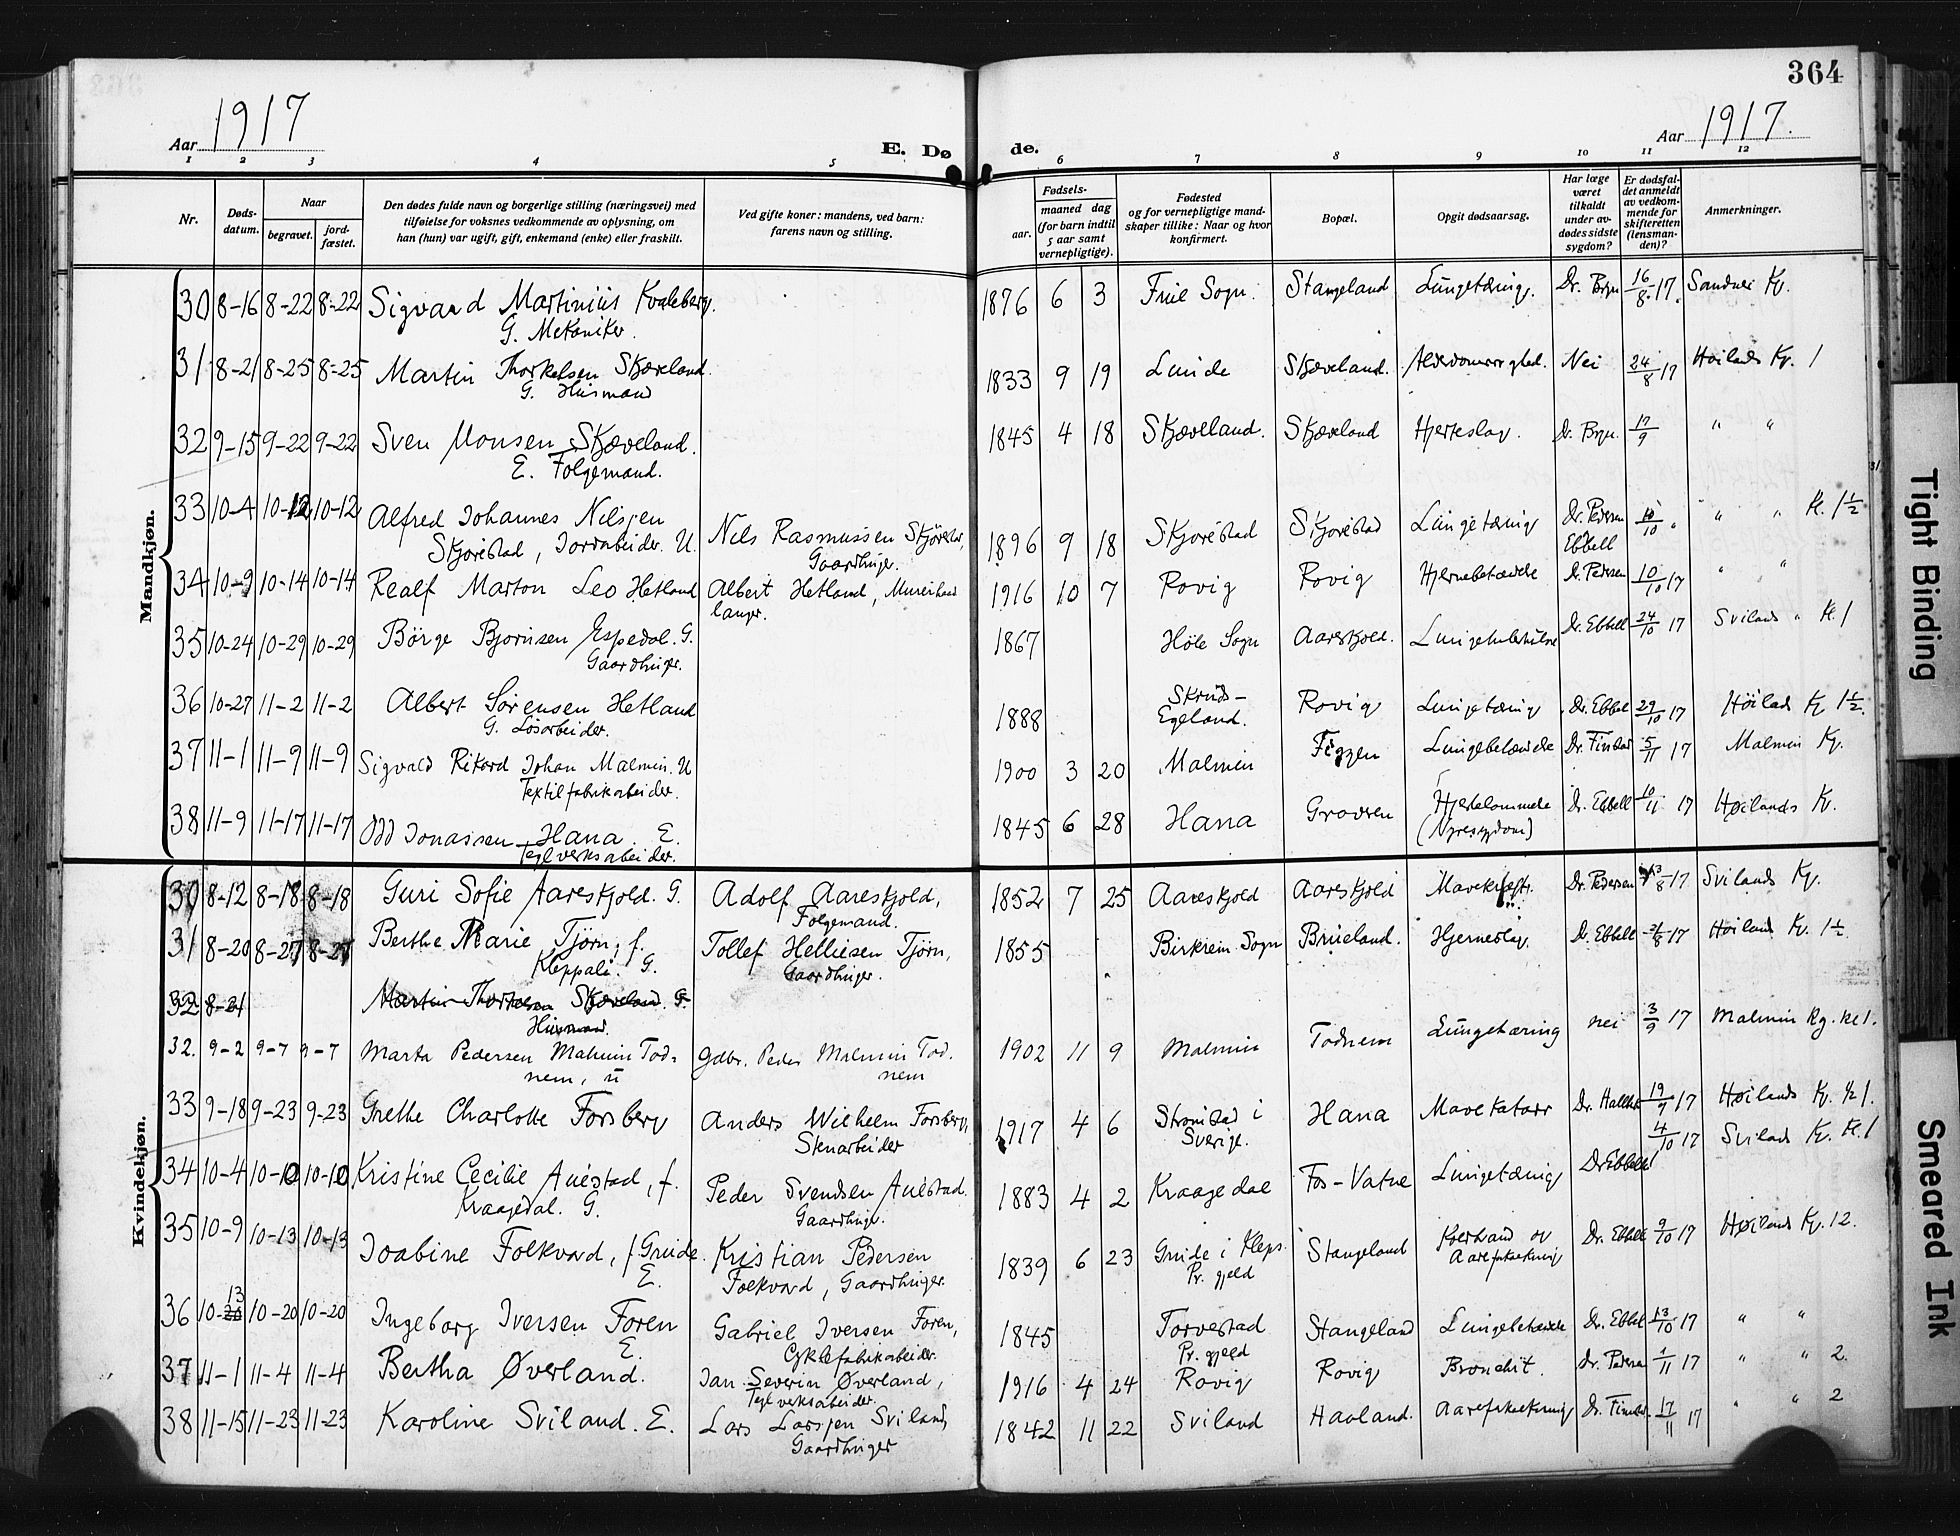 364
Aar 1917
E. Dø
de.
Aar 1917.
1 2 3 4 5 6 7 8 9 10 11 12
Nr.
Døds-
datum.
Naar
begravet.
jord-
fæstet.
Den dødes fulde navn og borgerlige stilling (næringsvei) med
tilføielse for voksnes vedkommende av oplysning, om
han (hun) var ugift, gift, enkemand (enke) eller fraskilt.
Ved gifte koner: mandens, ved barn:
farens navn og stilling.
Fødsels-
aar.
maaned dag
(for barn indtil
5 aar samt
vernepligtige).
Fødested
og for vernepligtige mand-
skaper tillike: Naar og hvor
konfirmert.
Bopæl.
Opgit dødsaarsag.
Har læge
været
tilkaldt
under av-
dødes sidste
sygdom?
Er dødsfal-
det anmeldt
av vedkom-
mende for
skifteretten
(lensman-
den)?
Anmerkninger.
Mandkjøn.
30 8-16 8-22 8-22 Sigvard Martinius Kvaleberg. 1876 6 3 Sogn. Stangeland Lungetæring. Dr. Bryn 16/8 17. Sandnes Kg.
G. Mekaniker.
31 8-21 8-25 8-25 Martin Thorkelsen Skjæveland. 1833 9 19 Lunde Skjæveland. Nei 24/8 17 Høilands Kg. 1
G. Husmand
32 9-15 9-22 9-22 Sven Monsen Skjæveland. 1845 4 18 Skjæveland. Skjæveland Hjerteslag. Dr. Bryn. 17/9 " "
E. Følgemand.
33 10-4 10-12 10-12 Alfred Johannes Nilsen Nils Rasmussen 1896 9 18 Skjørestad Skjørestad Lungetæring Dr. Pedersen " " Kl. 1½
Skjørestad, Jordarbeider. U. Gaardbruger. Ebbell
34 10-9 10-14 10-14 Realf Marton Leo Hetland Albert Hetland, Murerhand 1916 10 7 Rovig Rovig Hjernebetændelse Dr. Pedersen 10/10 17 " "
langer.
35 10-24 10-29 10-29 Børge Bjørnsen Espedal. G. 1867 Høle Sogn Aareskjold. Lungetuberkulose Dr. Ebbell 24/10 17 Svilands " Kl. 1
Gaardbruger.
36 10-27 11-2 11-2 Albert Sørensen Hetland 1888 Skruds-
Egeland. Rovig Lungetæring Dr. Ebbell 29/10 17 Høiland Kg 1½.
G. Løsarbeider.
37 11-1 11-9 11-9 Sigvald Rikard Johan Malmin. U 1900 3 20 Malmin Figgen Lungebetændelse 5/11 17 Malmin Kg.
Textilfabrikarbeider.
38 11-9 11-17 11-17 Odd Jonassen Hana. E. 1845 6 28 Hana Gravren Hjertelammelse Dr. Ebbell 10/11 17 Høilands Kg.
Teglverksarbeider. (Nyresygdom)
Kvindekjøn.
30 8-12 8-18 8-18 Guri Sofie Aareskjold. G. Adolf Aareskjold, 1852 7 25 Aareskjold Aareskjold Mavekræft. Dr. Pedersen 13/8 17 Svilands Kg.
Følgemand.
31 8-20 8-27 8-27 Berthe Marie Tjørn, f. Tollef Helliesen Tjørn, 1855 Birkrem Sogn Brueland. Hjerneslag. Dr. Ebbell 21/8 17 Høiland Kg. 1½
Kleppali. G. Gaardbruger.
32 8-21 Martin Thorkelsen Skjæveland. G.
Husmand.
32. 9-2 9-7 9-7 Marta Pedersen Malmin Tod- Gdbr. Peder Malmin Tod. 1902 11 9 Malmin Todnem Lungetæring nei 3/9 17 Malmin Kg. kl 1.
nem, u nem
33 9-18 9-23 9-23 Grethe Charlotte Forsberg Anders Wilhelm Forsberg, 1917 4 6 Strømstad i Hana Mavekatarr 19/9 17 Høilands Kg. Kl 1.
Stenarbeider Sverige.
34 10-4 10-10 10-10 Kristine Cecilie Auestad, f. Peder Svendsen Auestad. 1883 4 2 Kraagedal Fos-Vatne Lungetæring Dr Ebbell 4/10 17 Sviland Kg. Kl. 1
Kraagedal. G. Gaardbruger.
35 10-9 10-13 10-13 Joabine Folkvord, f. Grude. Kristian Pedersen 1839 6 23 Grude i Klep Stangeland Koldbrand og Dr. Ebbell 9/10 17 Høiland Kg. 12.
E. Folkvord, Gaardbruger. Pr. gjeld Aareforkalkning
36 10-13 10-20 10-20 Ingeborg Iversen Foren Gabriel Iversen Foren, 1845 Torvestad Stangeland Lungebetændelse Dr. Ebbell 13/10 17 " "
E. Cyklefabrikarbeider. Pr. gjeld
37 11-1 11-4 11-4 Bertha Øverland. Jan Severin Øverland, 1916 4 24 Rovig Rovig Bronchit. Dr. Pedersen 1/11 17 " " 2.
Teglverksarbeider.
38 11-15 11-23 11-23 Karoline Sviland. E. Lars Larsen Sviland, 1842 11 22 Sviland Haaland. Aareforkalkning 17/11 17 " " 2
Gaardbruger
Tight Binding
Smeared Ink